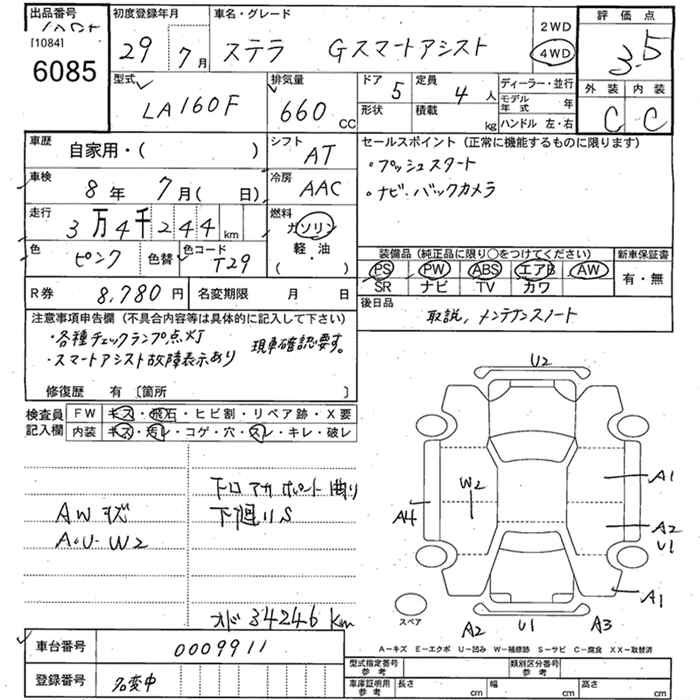 出品番号
[1084]
6085
初度登録年月
29年 7月
車名・グレード
ステラ Gスマートアシスト
2WD
4WD
評価点
3.5
外装 内装
C C
型式
LA160F
排気量
660 cc
ドア 5
形状
定員 4 人
積載 kg
ディーラー・並行
モデル年式 年
ハンドル 左・右
車歴
自家用・( )
シフト
AT
車検
8年 7月( 日)
冷房
AAC
走行
3万4千244 km
燃料
ガソリン
軽・油
( )
色
ピンク
色替
色コード
T29
セールスポイント (正常に機能するものに限ります)
・プッシュスタート
・ナビ・バックカメラ
装備品 (純正品に限り○をつけてください)
PS PW ABS エアB AW
SR ナビ TV カワ
新車保証書
有・無
R券 8,780円
名変期限 月 日
後日品
取説, メンテナンスノート
注意事項申告欄 (不具合内容等は具体的に記入して下さい)
・各種チェックランプ点灯
・スマートアシスト故障表示あり
現車確認要す。
修復歴 有 〔箇所 〕
検査員記入欄
FW キズ・飛石・ヒビ割・リペア跡・X要
内装 キズ・汚レ・コゲ・穴・スレ・キレ・破レ
AWキズ
A・U・W2
下回りS
オド 34246 km
U2
A1
W2
A4
A2
U1
A1
スペア
A2
U1
A3
A-キズ E-エクボ U-凹み W-補修跡 S-サビ C-腐食 XX-取替済
車台番号
0009911
登録番号
名変中
型式指定番号 参考
類別区分番号 参考
車庫証明用 参考
長さ cm
幅 cm
高さ cm